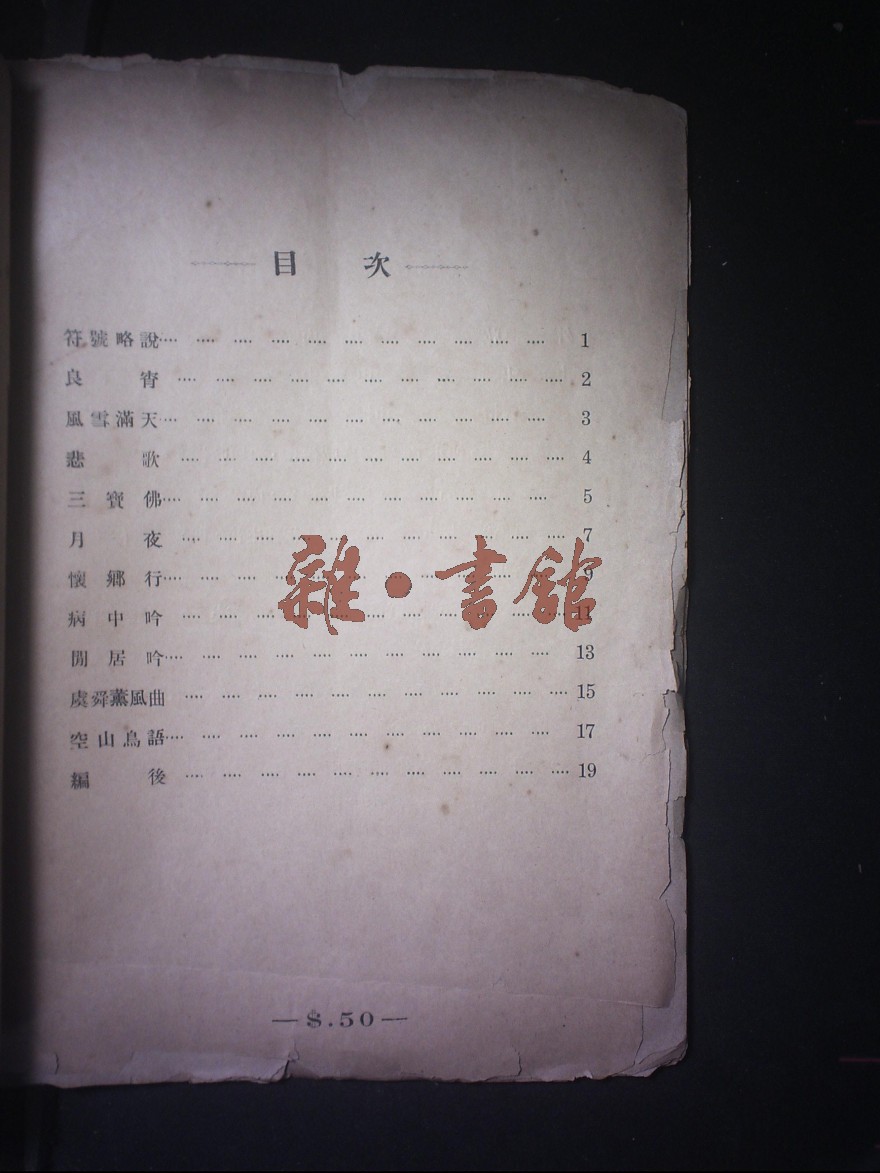 目 次
符號略說 1
良宵 2
風雪滿天 3
悲歌 4
三寶佛 5
月夜 7
懷鄉行 9
病中吟 11
閒居吟 13
虞舜薰風曲 15
空山鳥語 17
編後 19
雜·書館
—$.50—